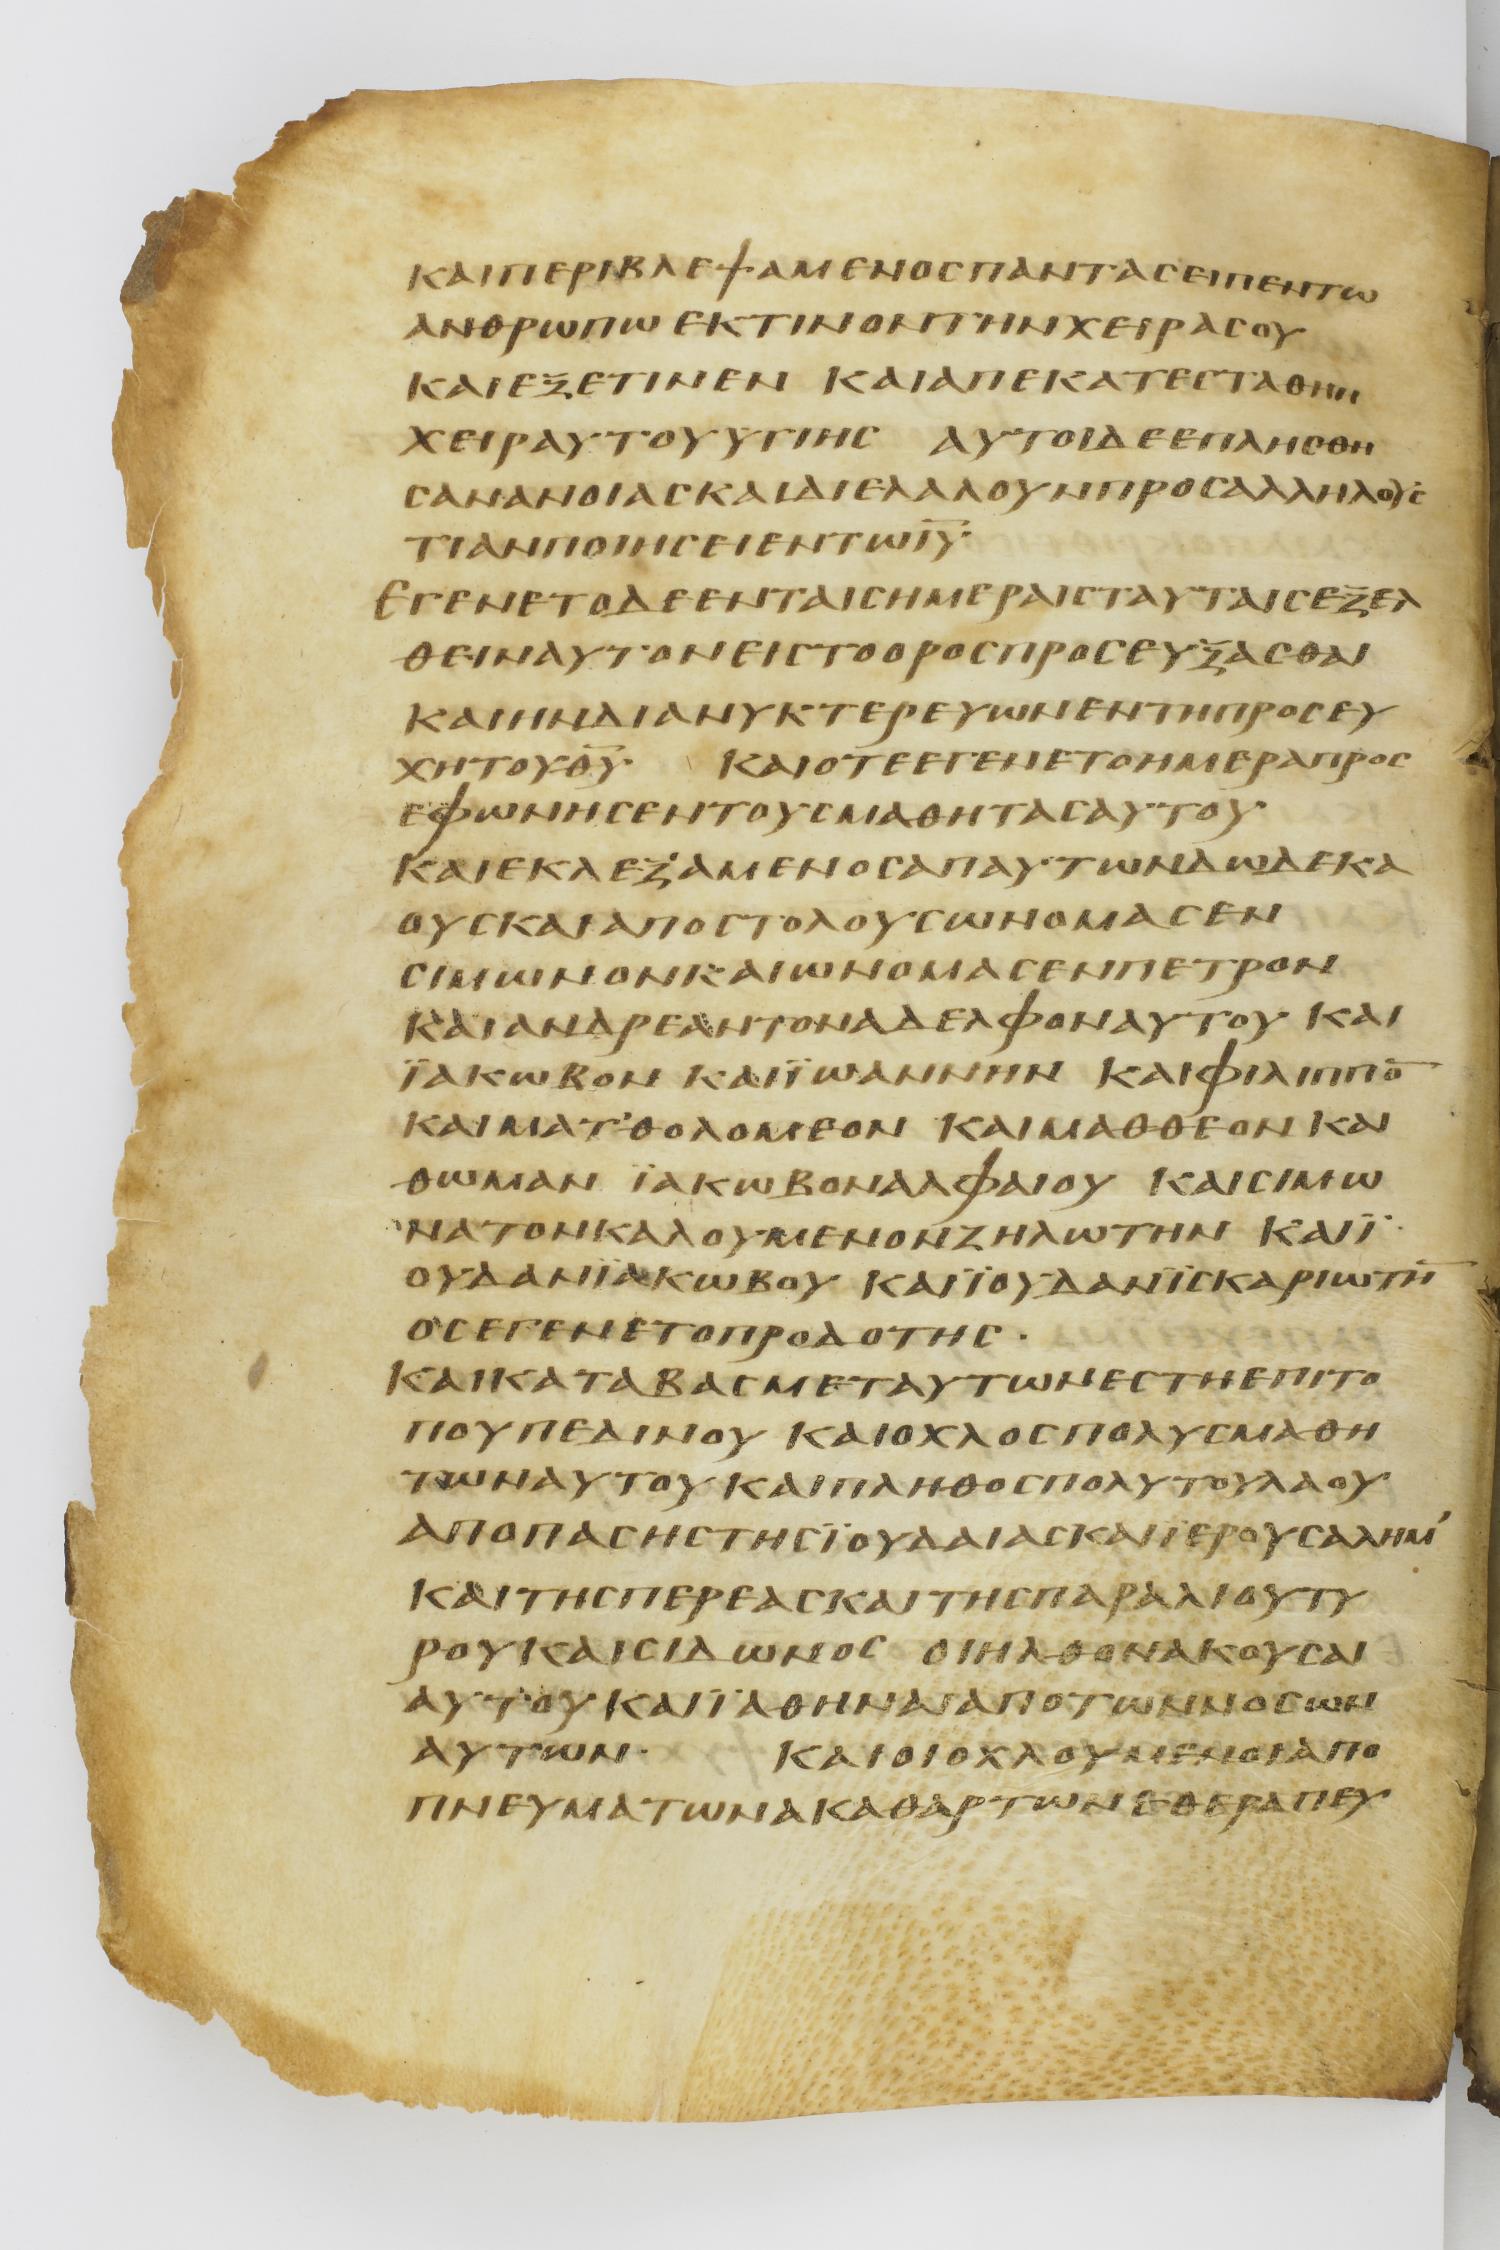 ΚΑΙΠΕΡΙΒΛΕΨΑΜΕΝΟΣΠΑΝΤΑΣΕΙΠΕΝΤΩ
ΑΝΘΡΩΠΩ ΕΚΤΙΝΟΝΤΗΝΧΕΙΡΑΣΟΥ
ΚΑΙΕΞΕΤΙΝΕΝ ΚΑΙΑΠΕΚΑΤΕΣΤΑΘΗΗ
ΧΕΙΡΑΥΤΟΥΥΓΙΗΣ ΑΥΤΟΙΔΕΕΠΛΗΣΘΗ
ΣΑΝΑΝΟΙΑΣΚΑΙΔΙΕΛΑΛΟΥΝΠΡΟΣΑΛΛΗΛΟΥΣ
ΤΙΑΝΠΟΙΗΣΕΙΕΝΤΩΙ̅Υ̅·
ΕΓΕΝΕΤΟΔΕΕΝΤΑΙΣΗΜΕΡΑΙΣΤΑΥΤΑΙΣΕΞΕΛ
ΘΕΙΝΑΥΤΟΝΕΙΣΤΟΟΡΟΣΠΡΟΣΕΥΞΑΣΘΑΙ
ΚΑΙΗΝΔΙΑΝΥΚΤΕΡΕΥΩΝΕΝΤΗΠΡΟΣΕΥ
ΧΗΤΟΥΘ̅Υ̅· ΚΑΙΟΤΕΕΓΕΝΕΤΟΗΜΕΡΑΠΡΟΣ
ΕΦΩΝΗΣΕΝΤΟΥΣΜΑΘΗΤΑΣΑΥΤΟΥ·
ΚΑΙΕΚΛΕΞΑΜΕΝΟΣΑΠΑΥΤΩΝΔΩΔΕΚΑ
ΟΥΣΚΑΙΑΠΟΣΤΟΛΟΥΣΩΝΟΜΑΣΕΝ
ΣΙΜΩΝΟΝΚΑΙΩΝΟΜΑΣΕΝΠΕΤΡΟΝ
ΚΑΙΑΝΔΡΕΑΝΤΟΝΑΔΕΛΦΟΝΑΥΤΟΥ ΚΑΙ
ΪΑΚΩΒΟΝ ΚΑΙΪΩΑΝΝΗΝ ΚΑΙΦΙΛΙΠΠΟ̅
ΚΑΙΜΑΤ'ΘΟΛΟΜΕΟΝ ΚΑΙΜΑΘΘΕΟΝ ΚΑΙ
ΘΩΜΑΝ ΪΑΚΩΒΟΝΑΛΦΑΙΟΥ ΚΑΙΣΙΜΩ
ΝΑΤΟΝΚΑΛΟΥΜΕΝΟΝΖΗΛΩΤΗΝ ΚΑΙΪ
ΟΥΔΑΝΪΑΚΩΒΟΥ ΚΑΙΪΟΥΔΑΝΪΣΚΑΡΙΩΤΗ̅
ΟΣΕΓΕΝΕΤΟΠΡΟΔΟΤΗΣ·
ΚΑΙΚΑΤΑΒΑΣΜΕΤΑΥΤΩΝΕΣΤΗΕΠΙΤΟ
ΠΟΥΠΕΔΙΝΟΥ ΚΑΙΟΧΛΟΣΠΟΛΥΣΜΑΘΗ
ΤΩΝΑΥΤΟΥΚΑΙΠΛΗΘΟΣΠΟΛΥΤΟΥΛΑΟΥ
ΑΠΟΠΑΣΗΣΤΗΣΪΟΥΔΑΙΑΣΚΑΙΪΕΡΟΥΣΑΛΗΜ'
ΚΑΙΤΗΣΠΕΡΕΑΣΚΑΙΤΗΣΠΑΡΑΛΙΟΥΤΥ
ΡΟΥΚΑΙΣΙΔΩΝΟΣ ΟΙΗΛΘΟΝΑΚΟΥΣΑΙ
ΑΥΤΟΥΚΑΙΪΑΘΗΝΑΙΑΠΟΤΩΝΝΟΣΩΝ
ΑΥΤΩΝ· ΚΑΙΟΙΟΧΛΟΥΜΕΝΟΙΑΠΟ
ΠΝΕΥΜΑΤΩΝΑΚΑΘΑΡΤΩΝΕΘΕΡΑΠΕΥ